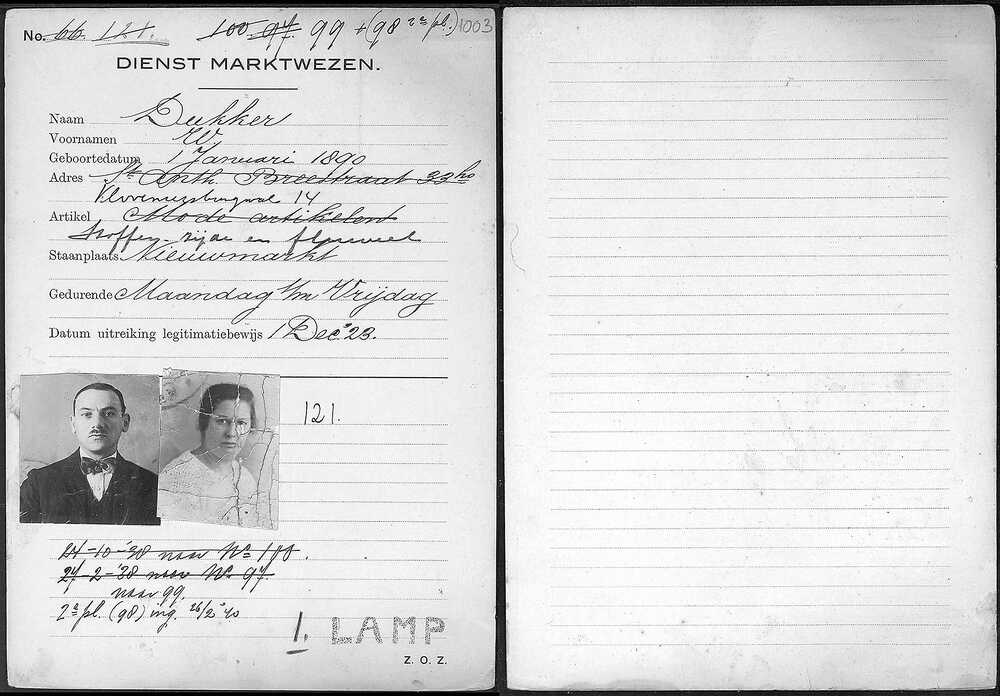 No. 66 121. 100 97 99 + (98 2e pl.) 1003
DIENST MARKTWEZEN.
Naam Dukker
Voornamen W.
Geboortedatum 1 Januari 1890
Adres St. Anth. Breestraat 33 ho
Kloveniersburgwal 14
Artikel Mode artikelen
Stoffen - zijde en fluweel
Staanplaats Nieuwmarkt
Gedurende Maandag t/m Vrijdag
Datum uitreiking legitimatiebewijs 1 Dec. '23.
121.
24-10-'38 naar No 100.
24-2-'38 naar No. 97
naar 99.
2e pl. (98) ing. 26/2 '40
1. LAMP
Z. O. Z.